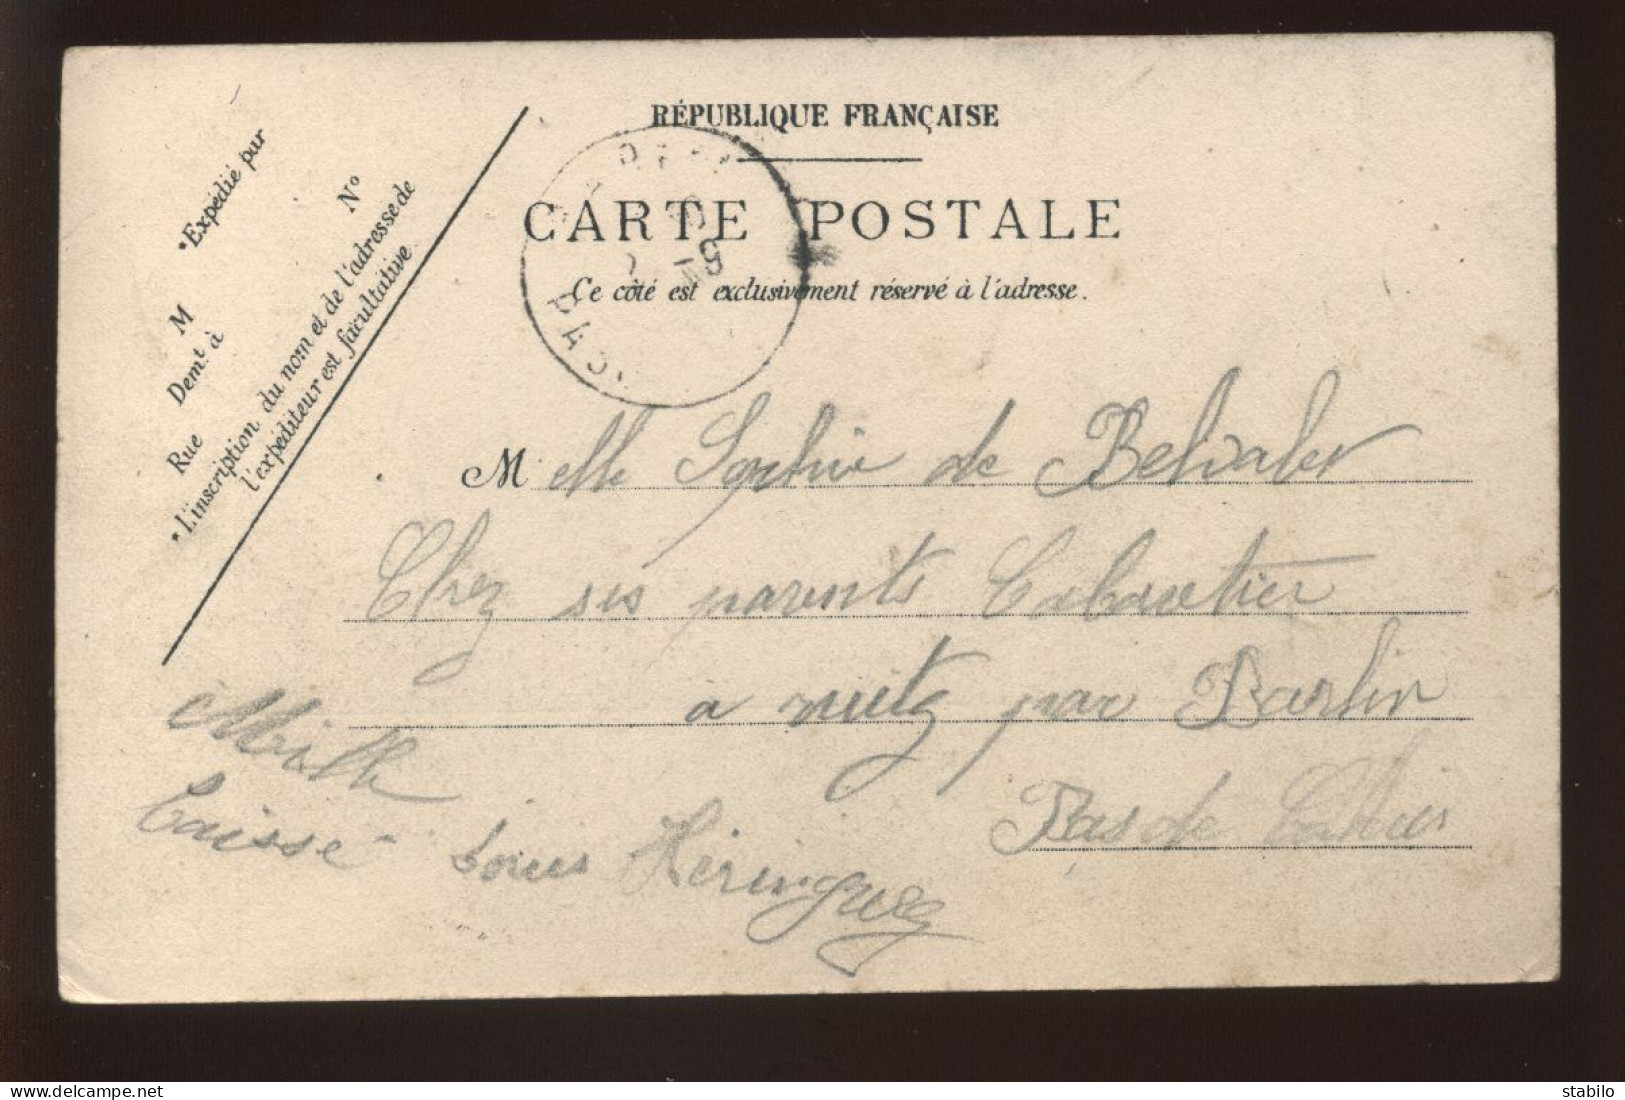 RÉPUBLIQUE FRANÇAISE
CARTE POSTALE
Ce côté est exclusivement réservé à l'adresse.
*Expédié par
M N°
Demt. à
Rue
*L'inscription du nom et de l'adresse de
l'expéditeur est facultative.
BARLIN
PAS
Melle Sophie de Belvaler
Chez ses parents Cabaretier
a ruitz par Barlin
Pas de Calais
Mille
Baisse
Heringuez
stabilo
www.delcampe.net